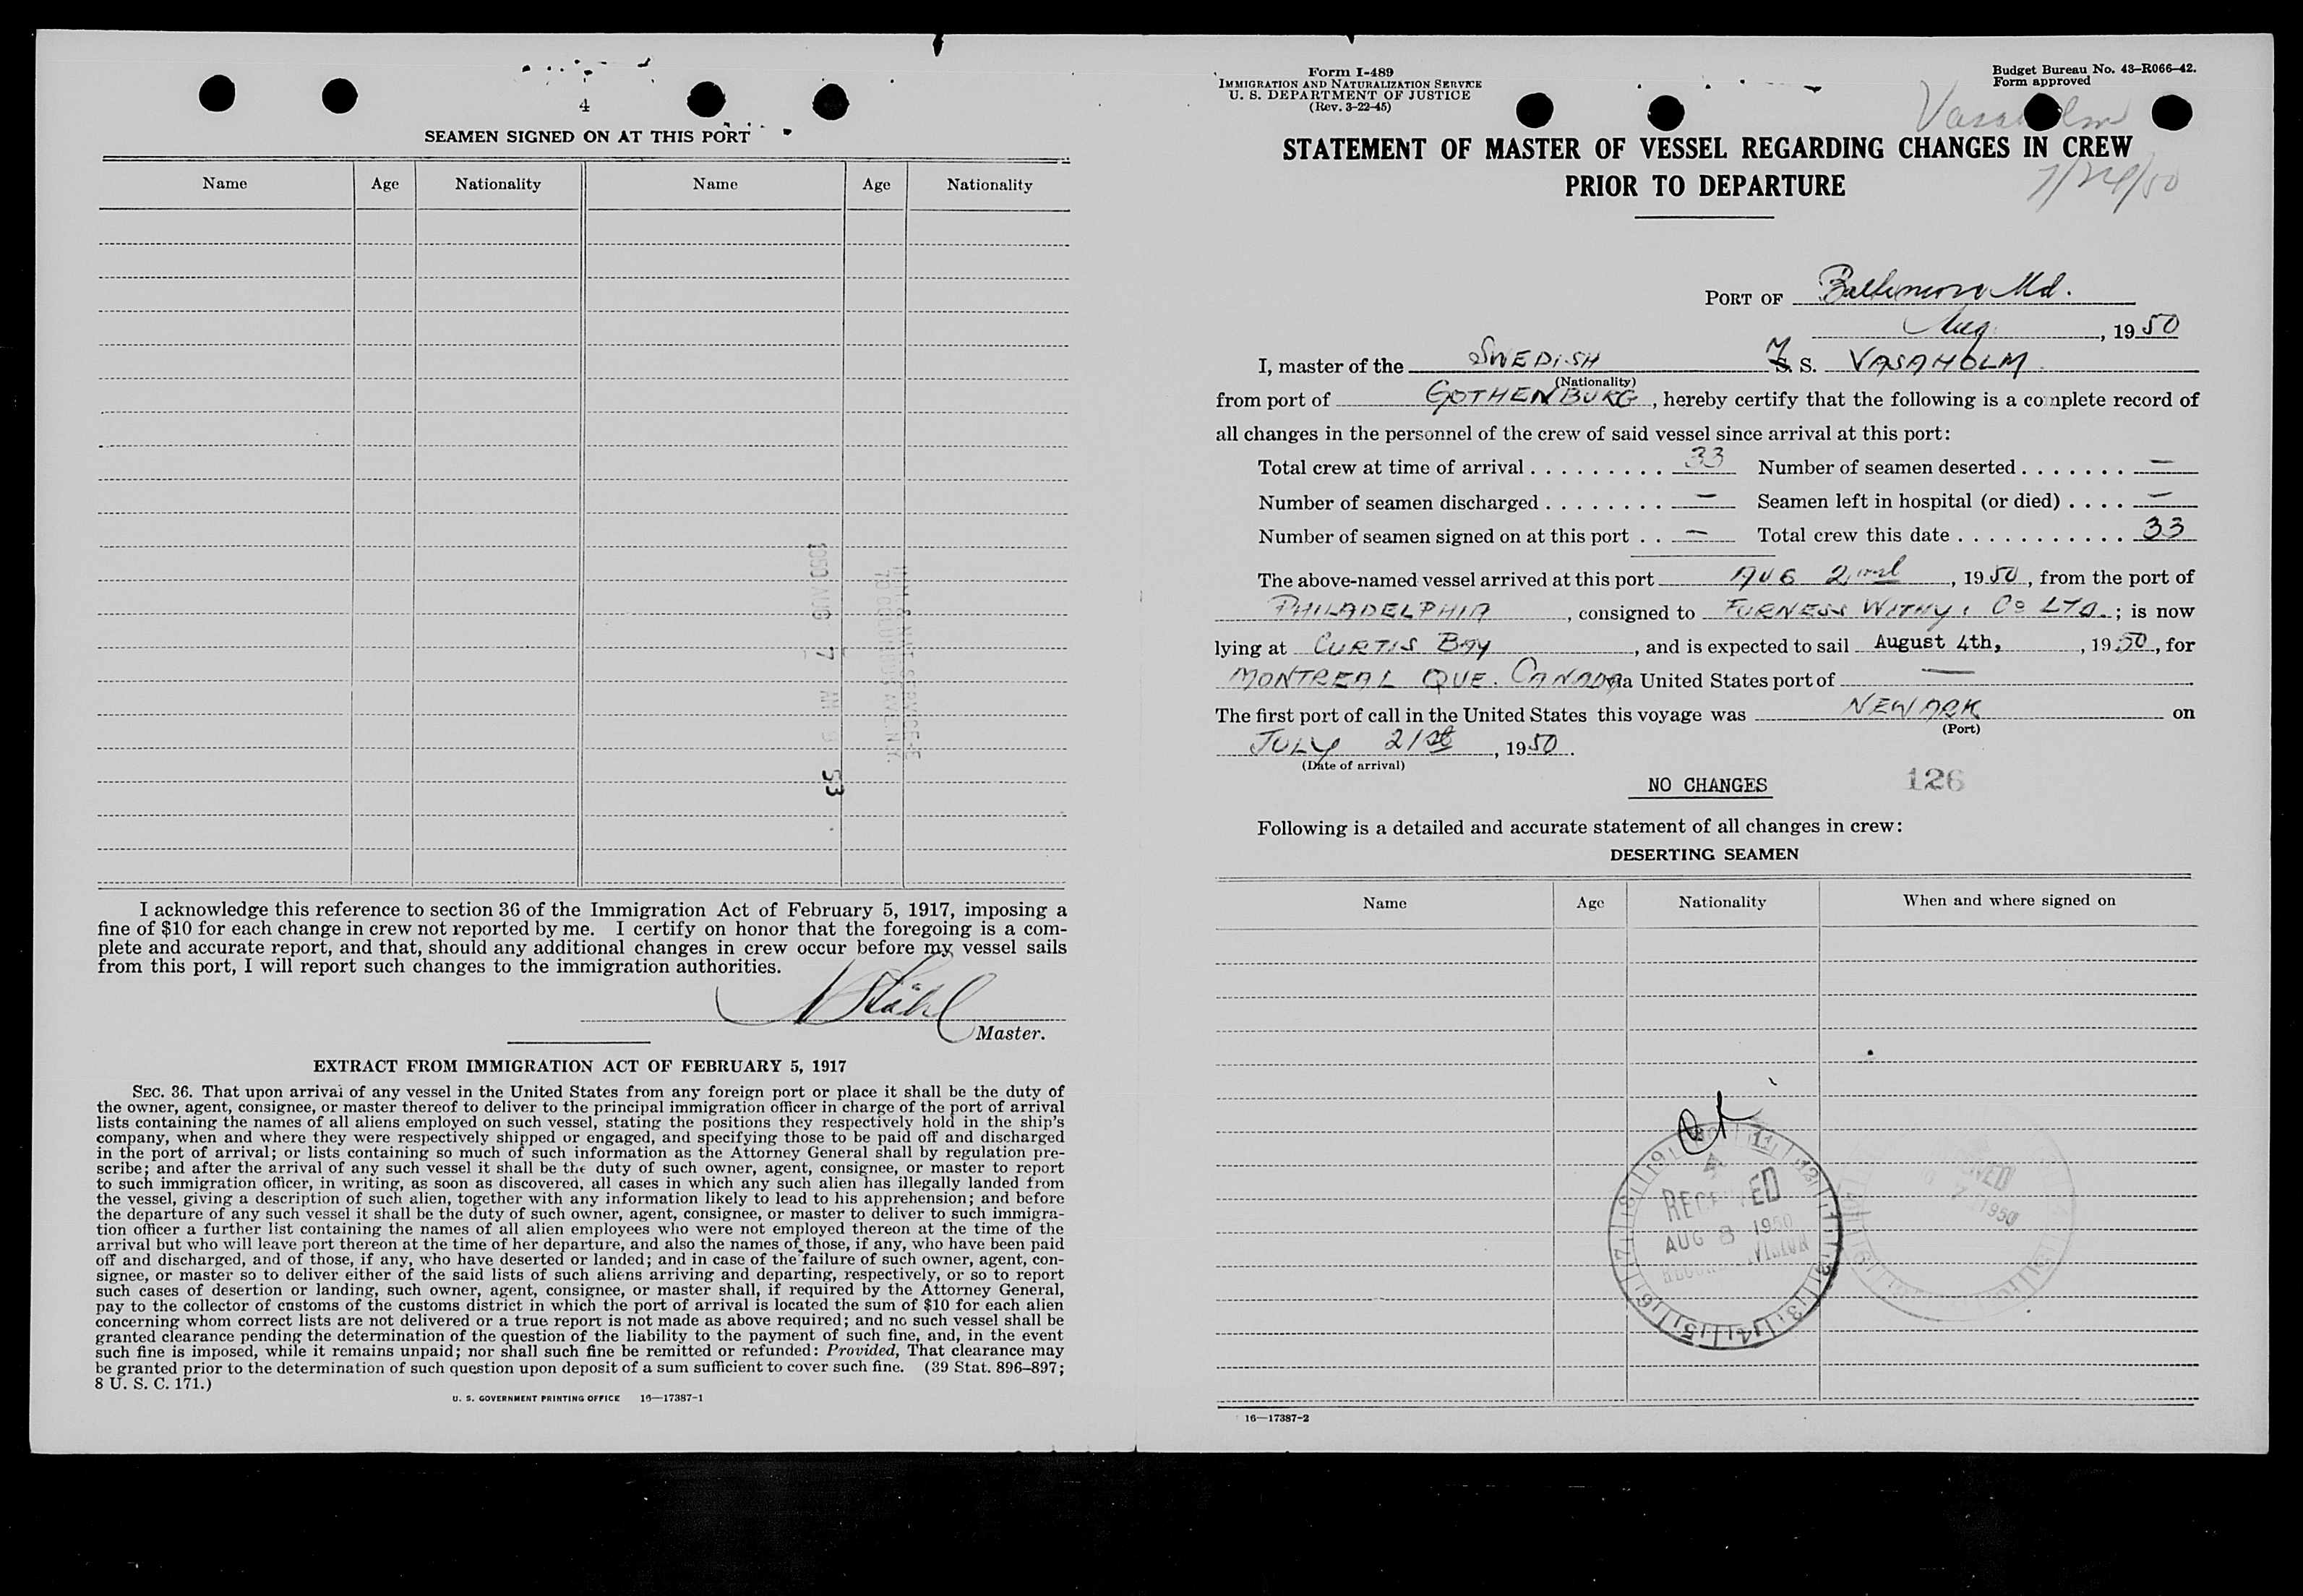 4
SEAMEN SIGNED ON AT THIS PORT
Name Age Nationality Name Age Nationality
1950 AUG 7 AM 9 53
I acknowledge this reference to section 36 of the Immigration Act of February 5, 1917, imposing a
fine of $10 for each change in crew not reported by me. I certify on honor that the foregoing is a com-
plete and accurate report, and that, should any additional changes in crew occur before my vessel sails
from this port, I will report such changes to the immigration authorities.
Master.
EXTRACT FROM IMMIGRATION ACT OF FEBRUARY 5, 1917
SEC. 36. That upon arrival of any vessel in the United States from any foreign port or place it shall be the duty of
the owner, agent, consignee, or master thereof to deliver to the principal immigration officer in charge of the port of arrival
lists containing the names of all aliens employed on such vessel, stating the positions they respectively hold in the ship's
company, when and where they were respectively shipped or engaged, and specifying those to be paid off and discharged
in the port of arrival; or lists containing so much of such information as the Attorney General shall by regulation pre-
scribe; and after the arrival of any such vessel it shall be the duty of such owner, agent, consignee, or master to report
to such immigration officer, in writing, as soon as discovered, all cases in which any such alien has illegally landed from
the vessel, giving a description of such alien, together with any information likely to lead to his apprehension; and before
the departure of any such vessel it shall be the duty of such owner, agent, consignee, or master to deliver to such immigra-
tion officer a further list containing the names of all alien employees who were not employed thereon at the time of the
arrival but who will leave port thereon at the time of her departure, and also the names of those, if any, who have been paid
off and discharged, and of those, if any, who have deserted or landed; and in case of the failure of such owner, agent, con-
signee, or master so to deliver either of the said lists of such aliens arriving and departing, respectively, or so to report
such cases of desertion or landing, such owner, agent, consignee, or master shall, if required by the Attorney General,
pay to the collector of customs of the customs district in which the port of arrival is located the sum of $10 for each alien
concerning whom correct lists are not delivered or a true report is not made as above required; and no such vessel shall be
granted clearance pending the determination of the question of the liability to the payment of such fine, and, in the event
such fine is imposed, while it remains unpaid; nor shall such fine be remitted or refunded: Provided, That clearance may
be granted prior to the determination of such question upon deposit of a sum sufficient to cover such fine. (39 Stat. 896–897;
8 U. S. C. 171.)
U. S. GOVERNMENT PRINTING OFFICE 16—17387-1
Form I-489
IMMIGRATION AND NATURALIZATION SERVICE
U. S. DEPARTMENT OF JUSTICE
(Rev. 3-22-45)
Budget Bureau No. 43-R066-42.
Form approved
Vasaholm
7/24/50
STATEMENT OF MASTER OF VESSEL REGARDING CHANGES IN CREW
PRIOR TO DEPARTURE
PORT OF Baltimore Md.
Aug. , 1950
I, master of the SWEDISH M S. S. VASAHOLM
(Nationality)
from port of GOTHENBURG, hereby certify that the following is a complete record of
all changes in the personnel of the crew of said vessel since arrival at this port:
Total crew at time of arrival . . . . . . . . . 33 Number of seamen deserted . . . . . . . —
Number of seamen discharged . . . . . . . . — Seamen left in hospital (or died) . . . . —
Number of seamen signed on at this port . . — Total crew this date . . . . . . . . . . . . 33
The above-named vessel arrived at this port AUG 2nd, 1950, from the port of
PHILADELPHIA, consigned to FURNESS WITHY & Co LTD.; is now
lying at CURTIS BAY, and is expected to sail August 4th, , 1950, for
MONTREAL QUE. CANADA via United States port of —
The first port of call in the United States this voyage was NEWARK on
(Port)
JULY 21st, 1950.
(Date of arrival)
NO CHANGES 126
Following is a detailed and accurate statement of all changes in crew:
DESERTING SEAMEN
Name Age Nationality When and where signed on
RECEIVED
AUG 8 1950
7 1950
16—17387-2